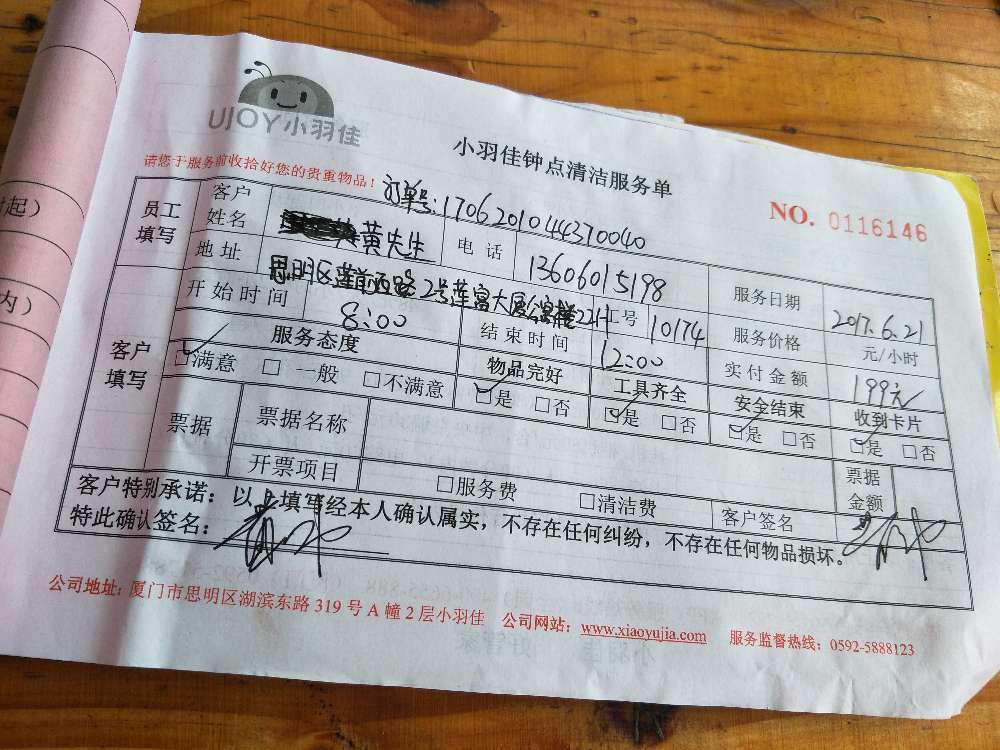 时起）
内）
UJOY小羽佳
小羽佳钟点清洁服务单
请您于服务前收拾好您的贵重物品！
订单号:1706201044370040
NO. 0116146
员工填写
客户姓名
黄先生
电话
13606015198
服务日期
2017.6.21
地址
思明区莲前西路2号莲富大厦公寓楼22H
工号
10174
服务价格
元/小时
开始时间
8:00
结束时间
12:00
实付金额
199元
客户填写
服务态度
物品完好
工具齐全
安全结束
收到卡片
☑满意 □一般 □不满意
☑是 □否
☑是 □否
☑是 □否
☑是 □否
票据
票据名称
票据金额
开票项目
□服务费
□清洁费
客户签名
客户特别承诺：以上填写经本人确认属实，不存在任何纠纷，不存在任何物品损坏。
特此确认签名：
公司地址：厦门市思明区湖滨东路319号A幢2层小羽佳 公司网站：www.xiaoyujia.com 服务监督热线：0592-5888123